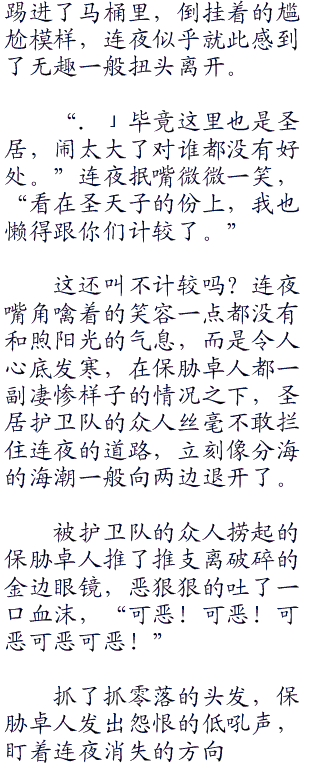 踢进了马桶里，倒挂着的尴
尬模样，连夜似乎就此感到
了无趣一般扭头离开。
“．」毕竟这里也是圣
居，闹太大了对谁都没有好
处。”连夜抿嘴微微一笑，
“看在圣天子的份上，我也
懒得跟你们计较了。”
这还叫不计较吗？连夜
嘴角噙着的笑容一点都没有
和煦阳光的气息，而是令人
心底发寒，在保胁卓人都一
副凄惨样子的情况之下，圣
居护卫队的众人丝毫不敢拦
住连夜的道路，立刻像分海
的海潮一般向两边退开了。
被护卫队的众人捞起的
保胁卓人推了推支离破碎的
金边眼镜，恶狠狠的吐了一
口血沫，“可恶！可恶！可
恶可恶可恶！”
抓了抓零落的头发，保
胁卓人发出怨恨的低吼声，
盯着连夜消失的方向